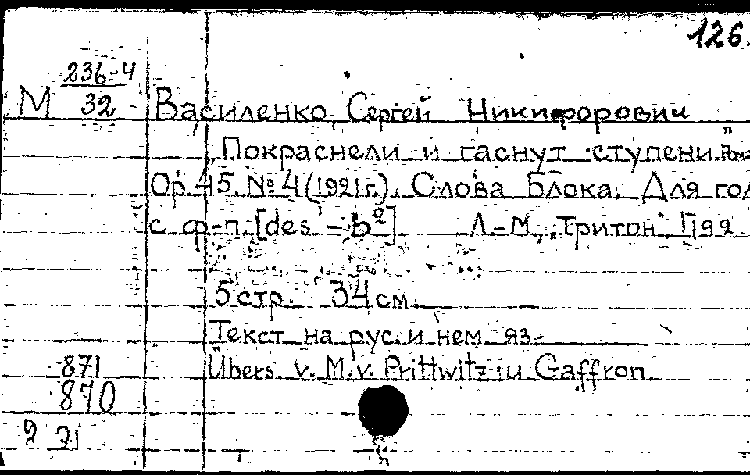 126
М 236-4
32 Василенко Сергей Никифорович
„Покраснели и гаснут ступени."
Op. 45 № 4 (1921 г.). Слова Блока. Для гол
с ф-п. [des - b²] Л.-М., „Тритон"
5 стр. 34 см.
Текст на рус. и нем. яз.
Übers. v. M. v. Prittwitz u Gaffron
871
870